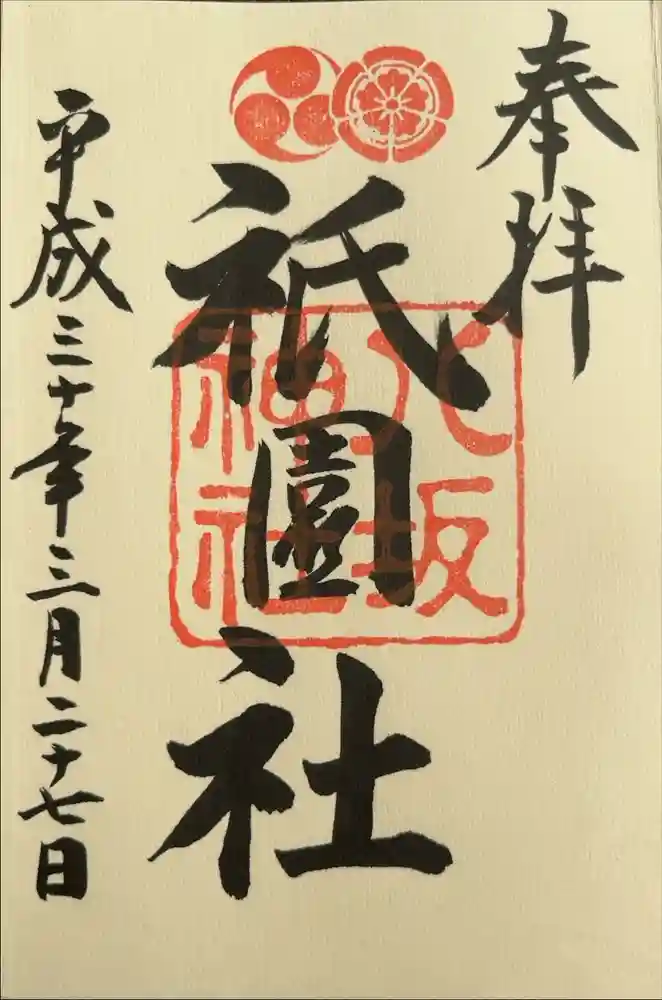 奉拝
祇園社
八坂
神社
平成三十年三月二十七日